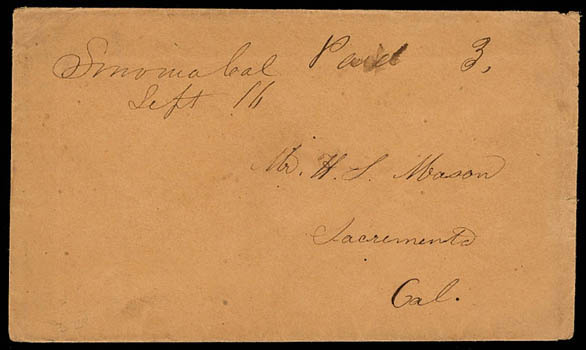 Sonoma Cal Paid 3,
Sept 16
Mr. H. S. Mason
Sacremento
Cal.